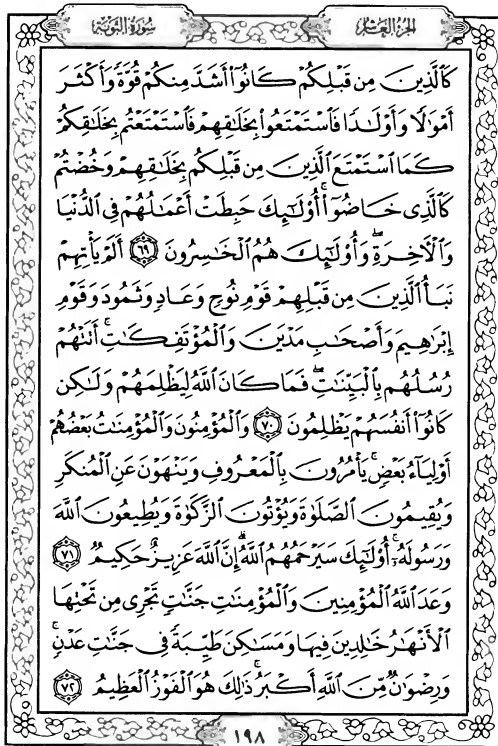 الجزء العاشر
سورة التوبة
كَٱلَّذِينَ مِن قَبۡلِكُمۡ كَانُوٓاْ أَشَدَّ مِنكُمۡ قُوَّةٗ وَأَكۡثَرَ
أَمۡوَٰلٗا وَأَوۡلَٰدٗا فَٱسۡتَمۡتَعُواْ بِخَلَٰقِهِمۡ فَٱسۡتَمۡتَعۡتُم بِخَلَٰقِكُمۡ
كَمَا ٱسۡتَمۡتَعَ ٱلَّذِينَ مِن قَبۡلِكُم بِخَلَٰقِهِمۡ وَخُضۡتُمۡ
كَٱلَّذِي خَاضُوٓاْۚ أُوْلَٰٓئِكَ حَبِطَتۡ أَعۡمَٰلُهُمۡ فِي ٱلدُّنۡيَا
وَٱلۡأٓخِرَةِۖ وَأُوْلَٰٓئِكَ هُمُ ٱلۡخَٰسِرُونَ ٦٩ أَلَمۡ يَأۡتِهِمۡ
نَبَأُ ٱلَّذِينَ مِن قَبۡلِهِمۡ قَوۡمِ نُوحٖ وَعَادٖ وَثَمُودَ وَقَوۡمِ
إِبۡرَٰهِيمَ وَأَصۡحَٰبِ مَدۡيَنَ وَٱلۡمُؤۡتَفِكَٰتِۚ أَتَتۡهُمۡ
رُسُلُهُم بِٱلۡبَيِّنَٰتِۖ فَمَا كَانَ ٱللَّهُ لِيَظۡلِمَهُمۡ وَلَٰكِن
كَانُوٓاْ أَنفُسَهُمۡ يَظۡلِمُونَ ٧٠ وَٱلۡمُؤۡمِنُونَ وَٱلۡمُؤۡمِنَٰتُ بَعۡضُهُمۡ
أَوۡلِيَآءُ بَعۡضٖۚ يَأۡمُرُونَ بِٱلۡمَعۡرُوفِ وَيَنۡهَوۡنَ عَنِ ٱلۡمُنكَرِ
وَيُقِيمُونَ ٱلصَّلَوٰةَ وَيُؤۡتُونَ ٱلزَّكَوٰةَ وَيُطِيعُونَ ٱللَّهَ
وَرَسُولَهُۥٓۚ أُوْلَٰٓئِكَ سَيَرۡحَمُهُمُ ٱللَّهُۗ إِنَّ ٱللَّهَ عَزِيزٌ حَكِيمٞ ٧١
وَعَدَ ٱللَّهُ ٱلۡمُؤۡمِنِينَ وَٱلۡمُؤۡمِنَٰتِ جَنَّٰتٖ تَجۡرِي مِن تَحۡتِهَا
ٱلۡأَنۡهَٰرُ خَٰلِدِينَ فِيهَا وَمَسَٰكِنَ طَيِّبَةٗ فِي جَنَّٰتِ عَدۡنٖۚ
وَرِضۡوَٰنٞ مِّنَ ٱللَّهِ أَكۡبَرُۚ ذَٰلِكَ هُوَ ٱلۡفَوۡزُ ٱلۡعَظِيمُ ٧٢
١٩٨